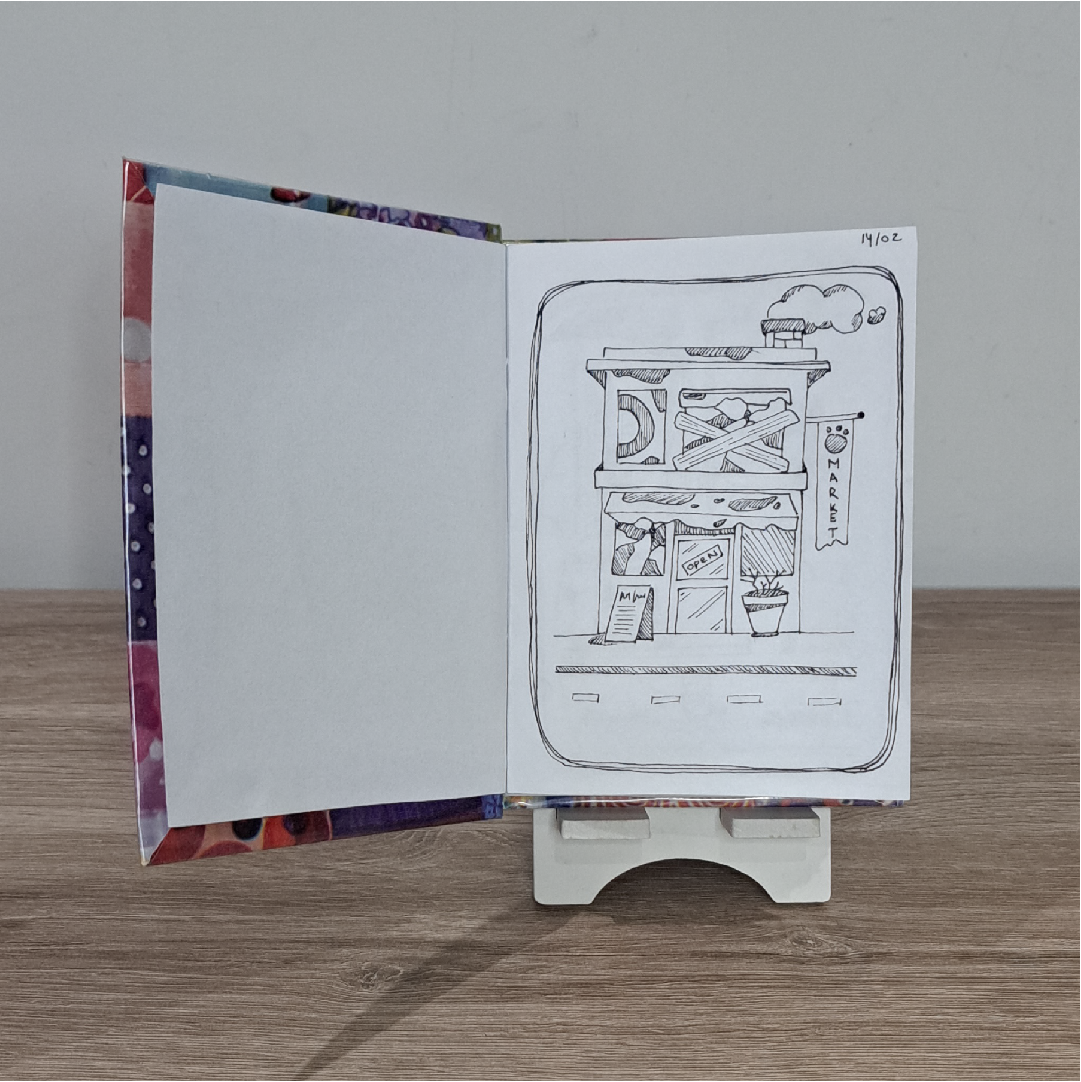 14/02
MARKET
OPEN